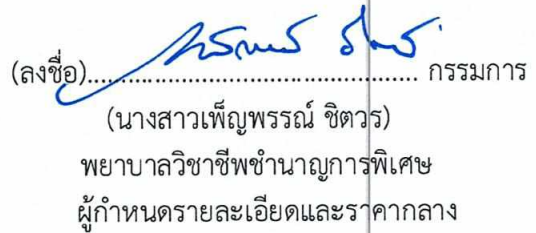 (ลงชื่อ)............................................ กรรมการ
(นางสาวเพ็ญพรรณ์ ชิตวร)
พยาบาลวิชาชีพชำนาญการพิเศษ
ผู้กำหนดรายละเอียดและราคากลาง